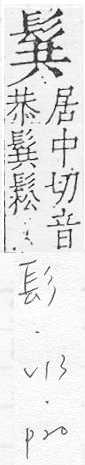 髸
居中切音
恭髸鬆
髟
·
V13
·
p20